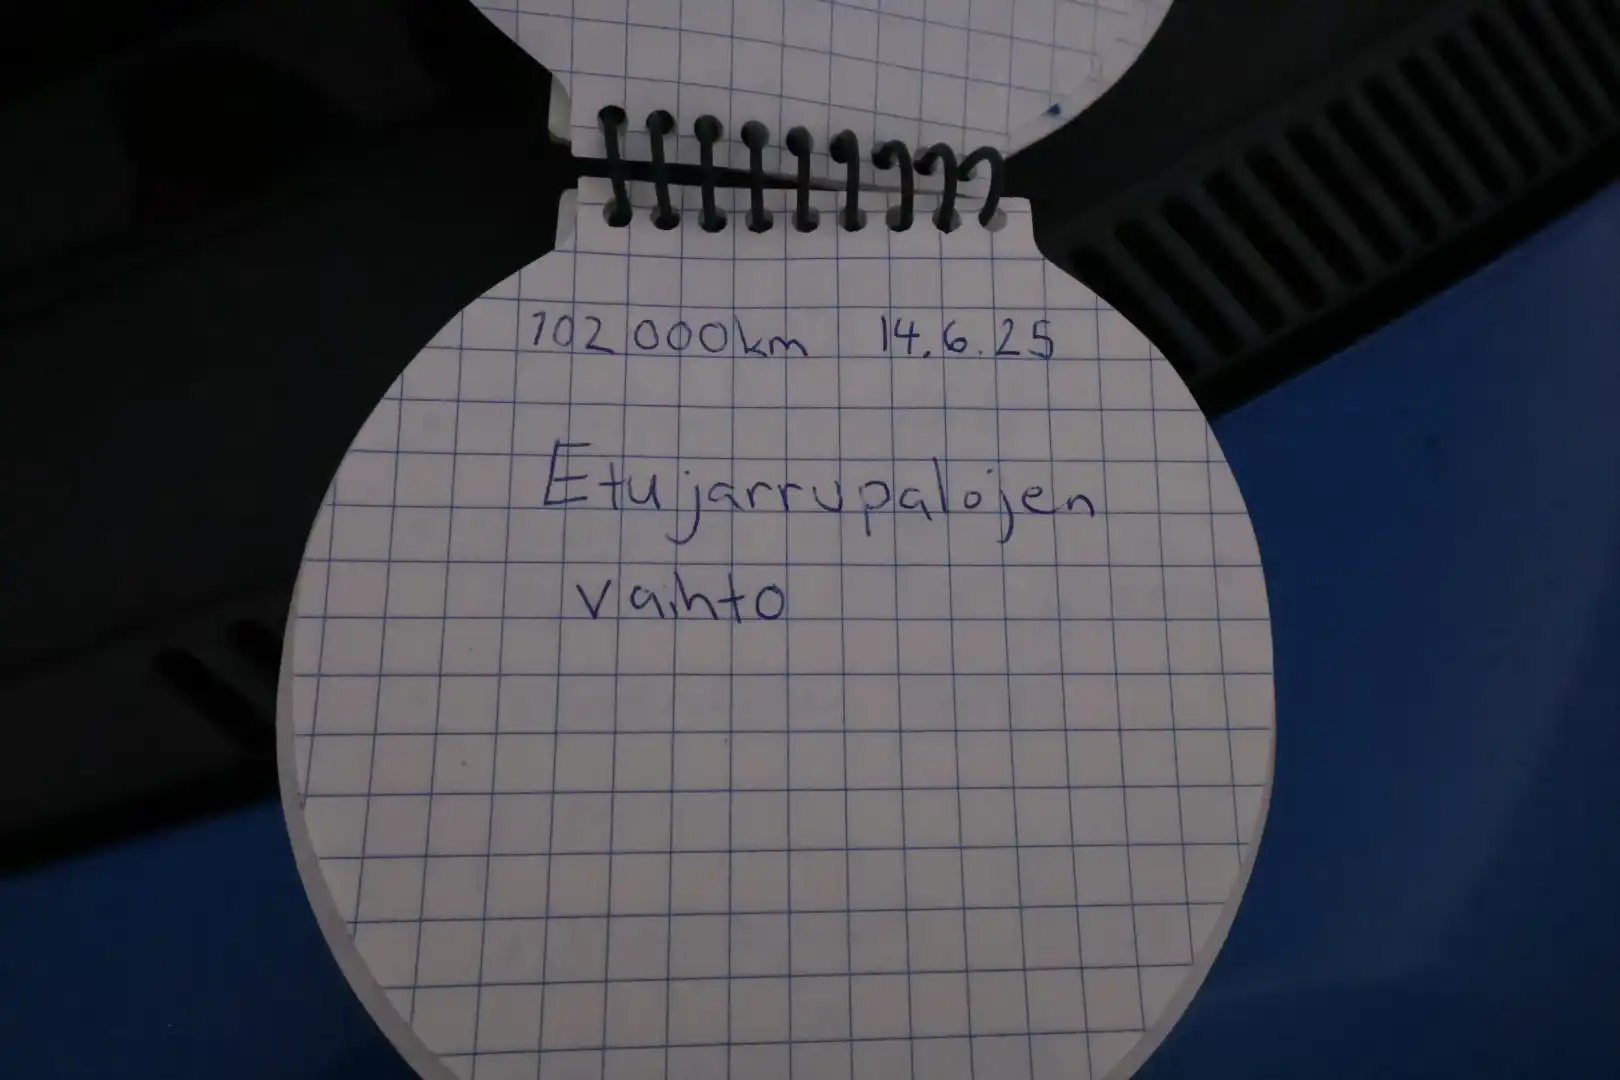 102 000km 14.6.25
Etujarrupalojen
vaihto